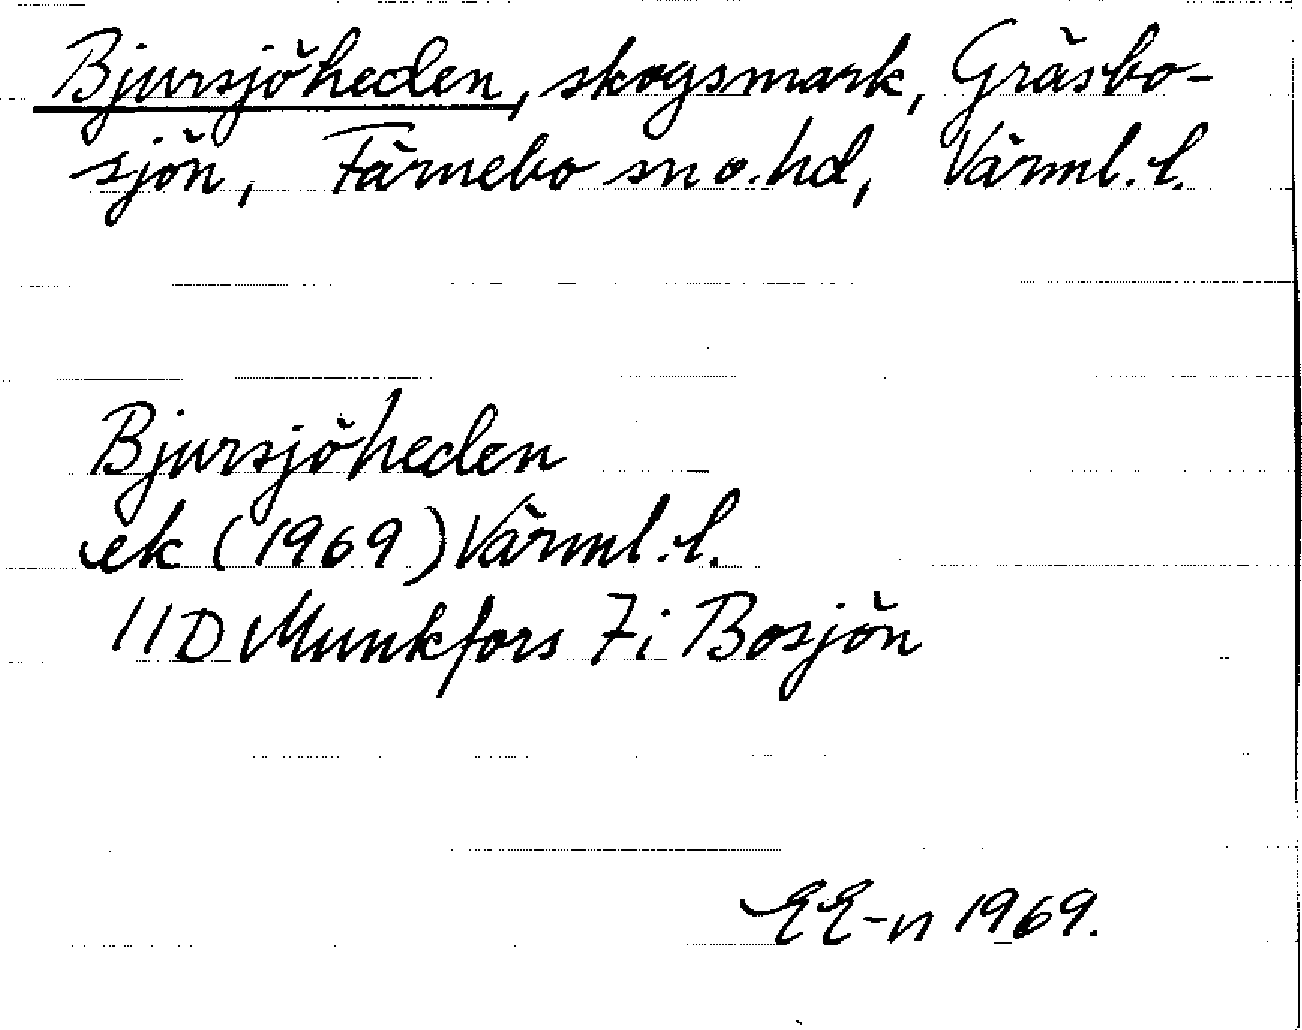 Bjursjöheden, skogsmark, Gräsbo-
sjön, Färnebo sn o. hd, Värml. l.
Bjursjöheden
ek (1969) Värml. l.
11D Munkfors 7i Bosjön
EE-n 1969.